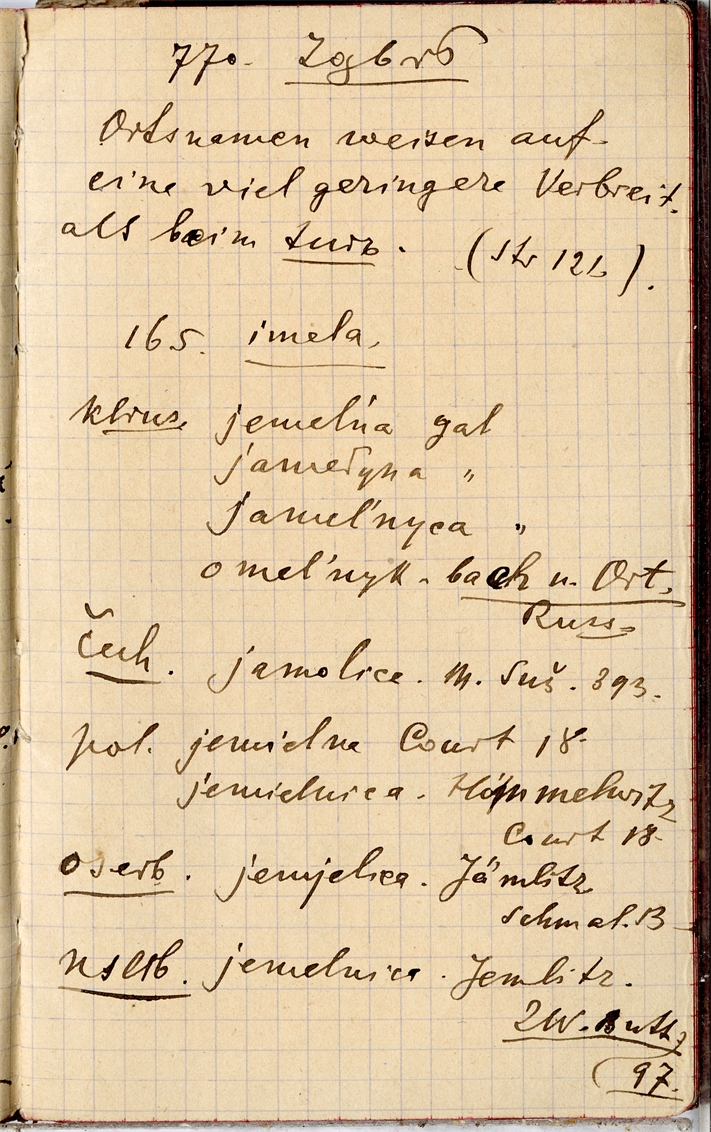 770. Zǫbrъ
Ortsnamen weisen auf
eine viel geringere Verbreit.
als beim turъ. (Str 121).
165. imela.
klruss. jemelńa gal
jamełyna "
jameľnyca "
omeľnyk - bach u. Ort.
Russ.
Čech. jamolice. M. Suš. 393.
pol. jemielna Court 18.
jemielnica. Himmelwitz
Court 18.
oserb. jemjelica. Jämlitz
Schmal. B
nserb. jemelnica. Jemlitz.
2W. Buttz
97.